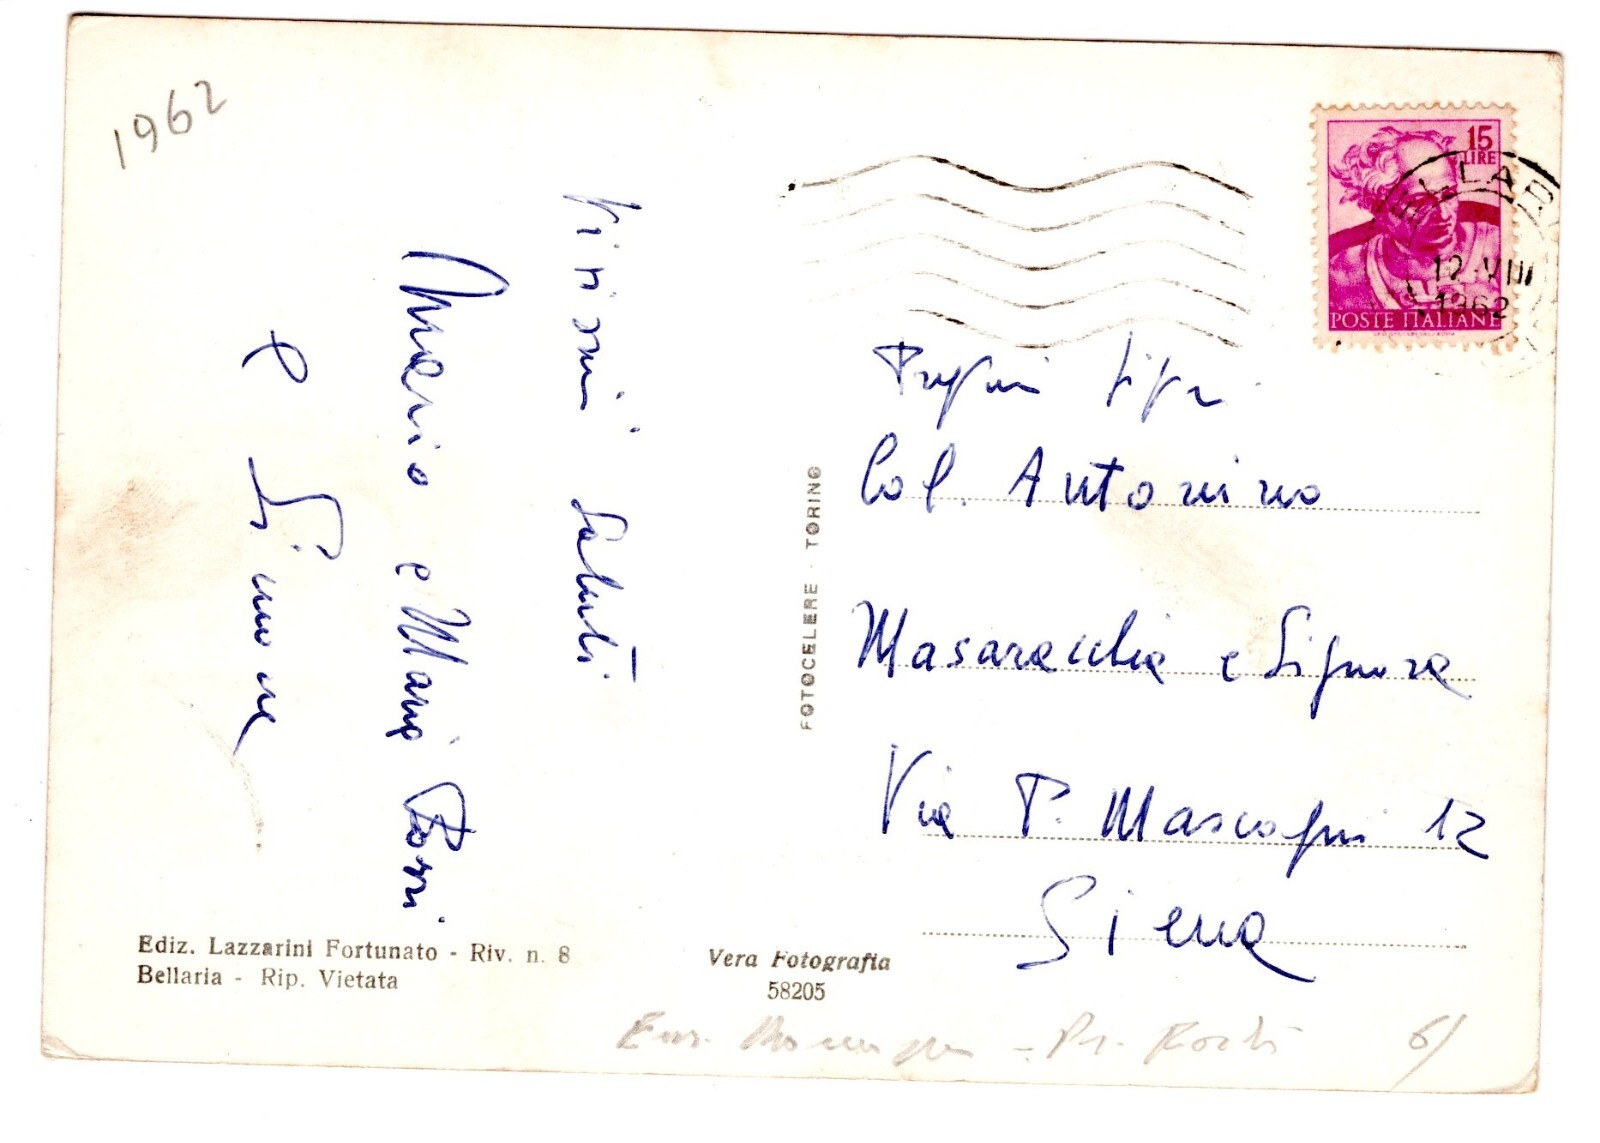 1962
15
LIRE
BELLARIA
12 VIII
1962
POSTE ITALIANE
Vivissimi saluti
Mario e Maria Rossi
e Simone
FOTOCELERE · TORINO
Pregmi Sigri
Col. Antonino
Masaracchia e Signora
Via P. Mascagni 12
Siena
Ediz. Lazzarini Fortunato - Riv. n. 8
Bellaria - Rip. Vietata
Vera Fotografia
58205
6/